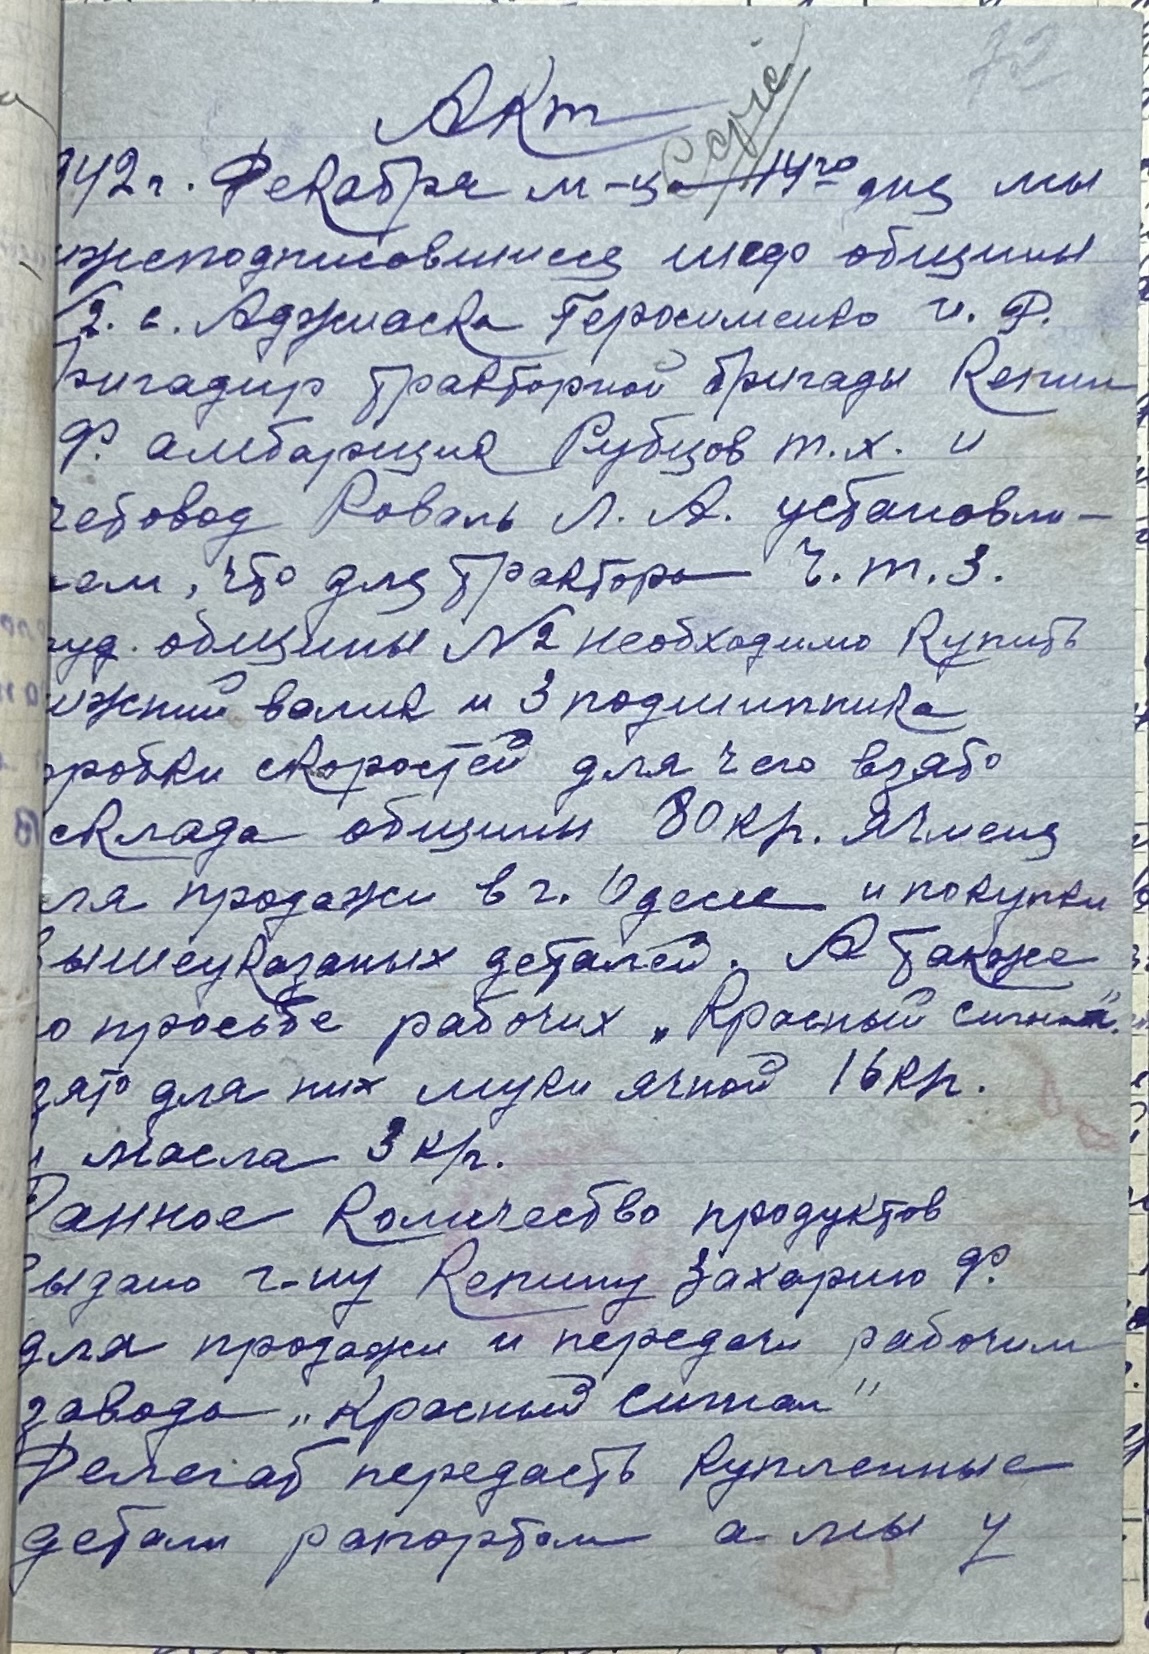 72
Акт
Copie
942 г. Декабря м-ца 14го дня мы
ижеподписовшиеся шеф общины
№2. с. Аджиаска Геросименко И. Ф.
Бригадир тракторной бригады Репин
Ф. амбарщик Рубцов Т. Х. и
четовод Коваль Л. А. установли-
ем, что для трактора Ч. Т. З.
руд. общины №2 необходимо купить
ижний валик и 3 подшипника
оробки скоростей для чего взято
склада общины 80 кгр. ячменя
ля продажи в г. Одесе и покупки
вышеуказаных деталей. А также
о просьбе рабочих „Красный сигнал".
зято для них муки ячной 16 кгр.
и масла 3 кгр.
Данное количество продуктов
выдано г-ну Репину Захарию Ф.
для продажи и передачи рабочим
завода „Красный Сигнал"
Делегат передасть купленные
детали рапортом а мы у